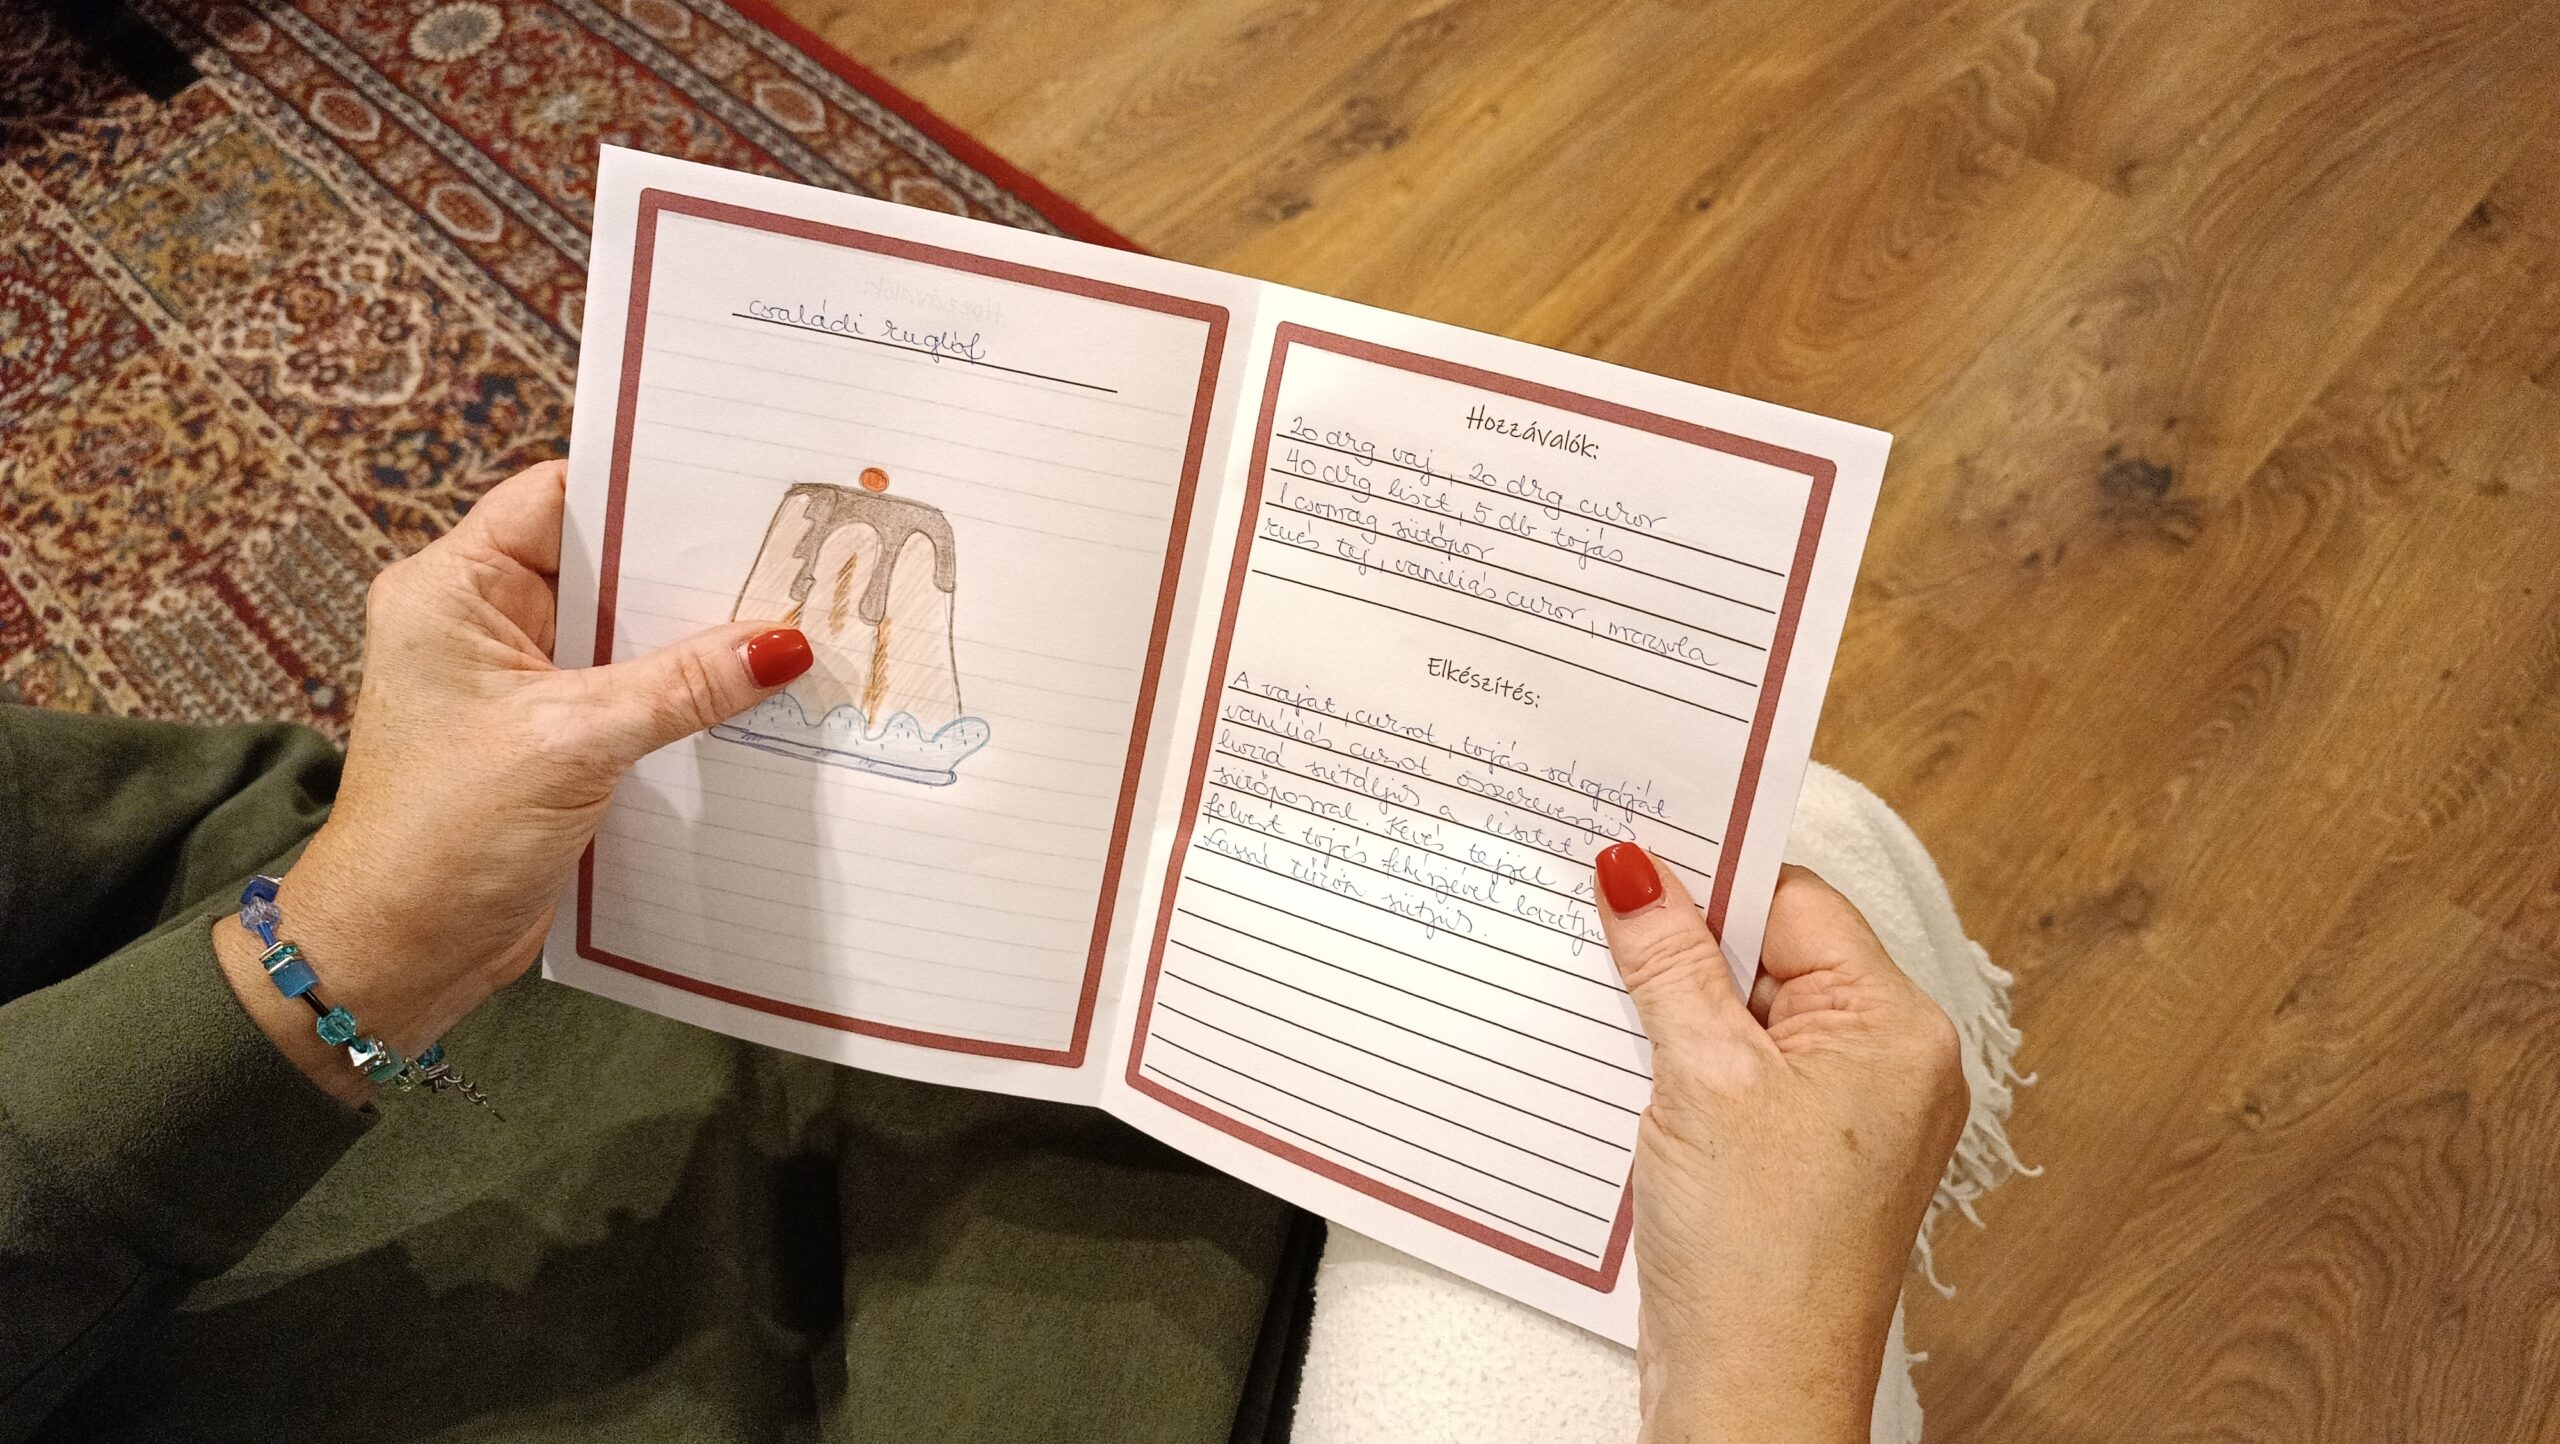 családi kuglóf
Hozzávalók:
20 dkg vaj, 20 dkg cukor
40 dkg liszt, 5 db tojás
1 csomag sütőpor
kevés tej, vaníliás cukor, mazsola
Elkészítés:
A vajat, cukrot, tojás sárgáját
vaníliás cukrot összekeverjük
hozzá szitáljuk a lisztet
sütőporral. Kevés tejjel és
felvert tojás fehérjével lazítju
Lassú tűzön sütjük.